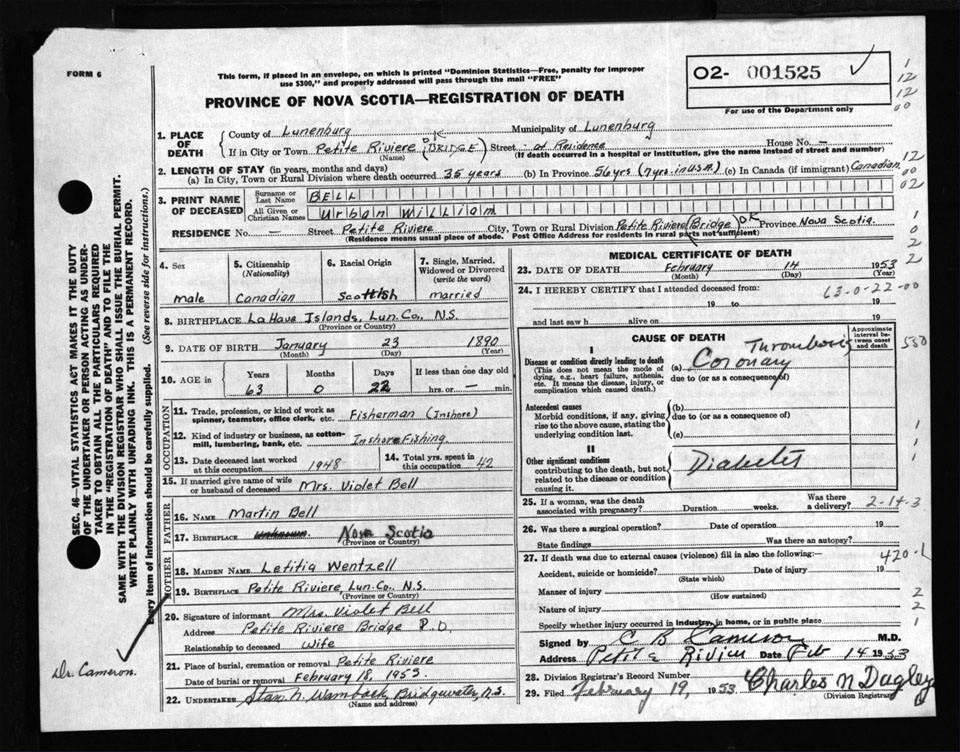 FORM 6
This form, if placed in an envelope, on which is printed "Dominion Statistics—Free, penalty for improper
use $300," and properly addressed will pass through the mail "FREE"
PROVINCE OF NOVA SCOTIA—REGISTRATION OF DEATH
O2- 001525 ✓
For use of the Department only
1
12
12
00
1. PLACE OF DEATH
County of Lunenburg Municipality of Lunenburg
If in City or Town Petite Riviere (BRIDGE) Street at Residence House No. —
(Name) (If death occurred in a hospital or institution, give the name instead of street and number)
2. LENGTH OF STAY (in years, months and days)
(a) In City, Town or Rural Division where death occurred 36 years (b) In Province 56 yrs (7 yrs. in U.S.A.) (c) In Canada (if immigrant) Canadian
12
00
02
3. PRINT NAME OF DECEASED
Surname or Last Name BELL
All Given or Christian Names Urban William
RESIDENCE No. — Street Petite Riviere City, Town or Rural Division Petite Riviere (Bridge) OK Province Nova Scotia.
(Residence means usual place of abode. Post Office Address for residents in rural parts not sufficient)
1
0
2
2
4. Sex
male
5. Citizenship (Nationality)
Canadian
6. Racial Origin
Scottish
7. Single, Married, Widowed or Divorced (write the word)
married
8. BIRTHPLACE La Have Islands, Lun. Co., N.S.
(Province or Country)
9. DATE OF BIRTH January 23 1890
(Month) (Day) (Year)
10. AGE in
Years Months Days If less than one day old
63 0 22 hrs. or — min.
OCCUPATION
11. Trade, profession, or kind of work as spinner, teamster, office clerk, etc. Fisherman (Inshore)
12. Kind of industry or business, as cotton-mill, lumbering, bank, etc. Inshore Fishing.
13. Date deceased last worked at this occupation 1948
14. Total yrs. spent in this occupation 42
15. If married give name of wife or husband of deceased Mrs. Violet Bell
FATHER
16. NAME Martin Bell
17. BIRTHPLACE Unknown. Nova Scotia
(Province or Country)
MOTHER
18. MAIDEN NAME. Letitia Wentzell
19. BIRTHPLACE Petite Riviere, Lun. Co., N.S.
(Province or Country)
20. Signature of informant Mrs. Violet Bell
Address Petite Riviere Bridge P.O.
Relationship to deceased Wife
21. Place of burial, cremation or removal Petite Riviere
Date of burial or removal February 18, 1953.
22. UNDERTAKER Stan. N. Wamback, Bridgewater, N.S.
(Name and address)
MEDICAL CERTIFICATE OF DEATH
23. DATE OF DEATH February 14 1953
(Month) (Day) (Year)
24. I HEREBY CERTIFY that I attended deceased from:
63-0-22-00
19 to 19
and last saw h alive on 19
CAUSE OF DEATH
Approximate interval between onset and death
530
Disease or condition directly leading to death
(This does not mean the mode of dying, e.g., heart failure, asthenia, etc. It means the disease, injury, or complication which caused death.)
(a) Coronary Thrombosis
due to (or as a consequence of)
Antecedent causes
Morbid conditions, if any, giving rise to the above cause, stating the underlying condition last.
(b)
due to (or as a consequence of)
(c)
II
Other significant conditions
contributing to the death, but not related to the disease or condition causing it.
Diabetes
1
1
1
25. If a woman, was the death associated with pregnancy? Duration weeks. Was there a delivery? 2-14-3
26. Was there a surgical operation? Date of operation 19
State findings Was there an autopsy?
27. If death was due to external causes (violence) fill in also the following:
420-1
Accident, suicide or homicide? Date of injury 19
(State which)
Manner of injury
(How sustained)
Nature of injury
Specify whether injury occurred in industry, in home, or in public place
2
2
1
Signed by C B Cameron M.D.
Address Petite Riviere Date Feb 14 1953
28. Division Registrar's Record Number
29. Filed February 19, 1953 Charles N Dagley
(Division Registrar)
SEC. 46—VITAL STATISTICS ACT MAKES IT THE DUTY
OF THE UNDERTAKER OR PERSON ACTING AS UNDER-
TAKER TO OBTAIN ALL THE PARTICULARS REQUIRED
IN THE "REGISTRATION OF DEATH" AND TO FILE THE
SAME WITH THE DIVISION REGISTRAR WHO SHALL ISSUE THE BURIAL PERMIT.
WRITE PLAINLY WITH UNFADING INK. THIS IS A PERMANENT RECORD.
Every item of information should be carefully supplied. (See reverse side for instructions.)
Dr. Cameron. ✓